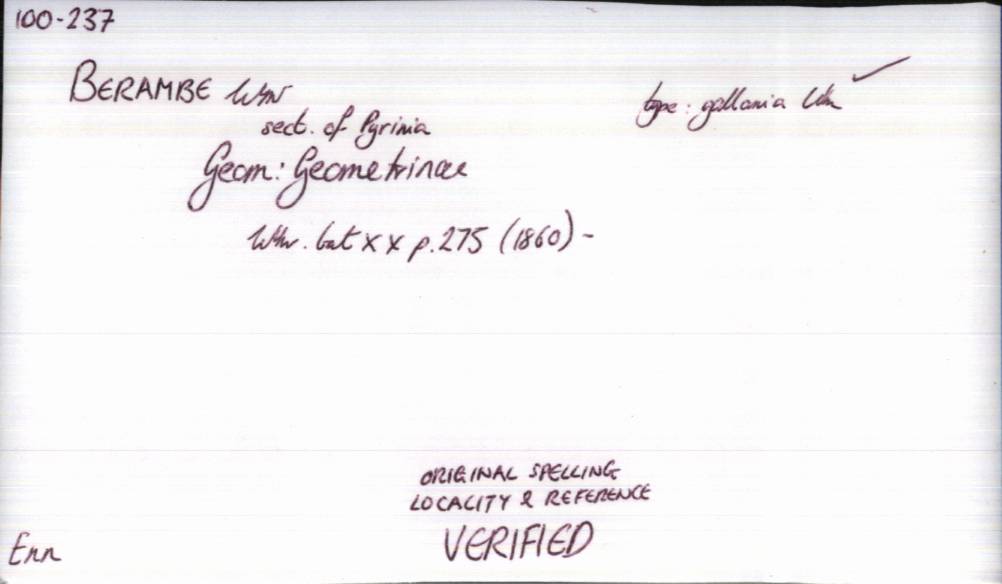 100-237
BERAMBE Wkr
type: gallania Wkr ✓
sect. of Pyrinia
Geom: Geometrinae
Wkr. Cat x x p. 275 (1860) -
ORIGINAL SPELLING
LOCALITY & REFERENCE
VERIFIED
Enn